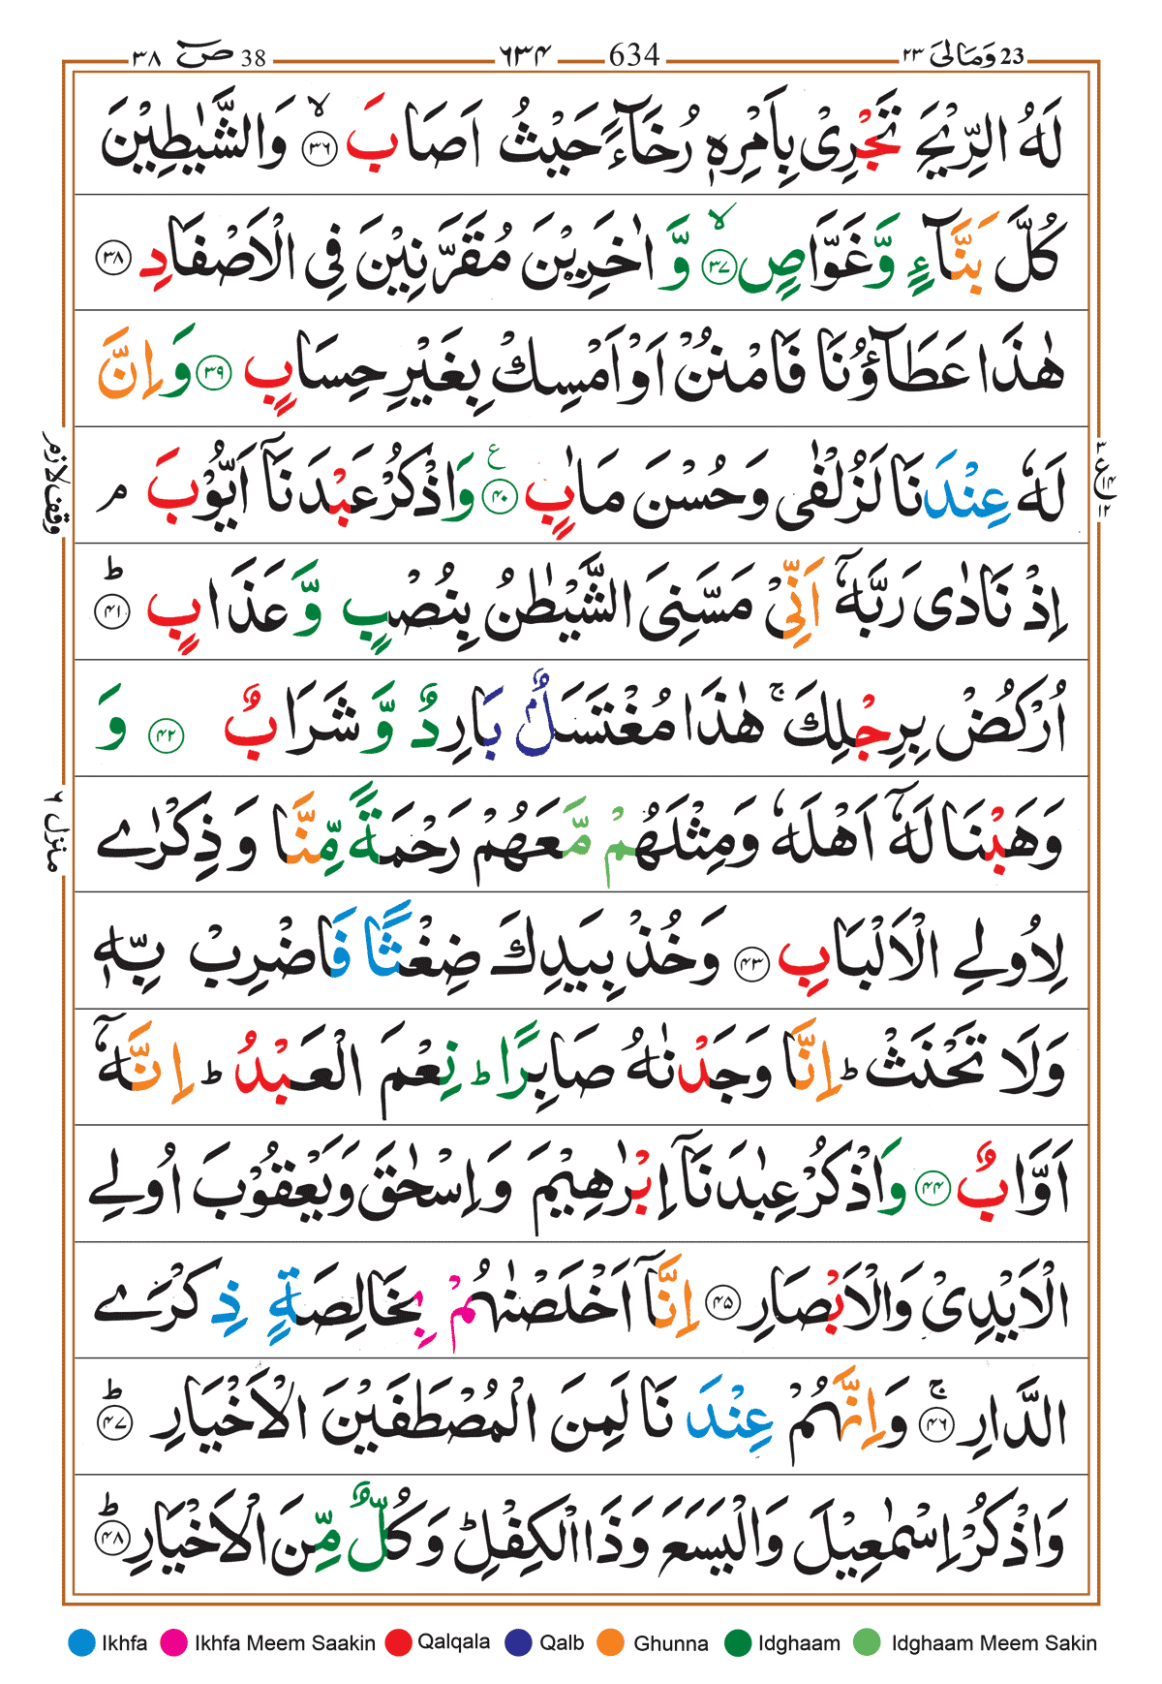 ٣٨ صٓ 38 ٦٣٤ 634 ٢٣ وَمَالِىَ 23
لَهُ الرِّيْحَ تَجْرِىْ بِاَمْرِهٖ رُخَآءً حَيْثُ اَصَابَ ۙ﴿۳۶﴾ وَالشَّيٰطِيْنَ
كُلَّ بَنَّآءٍ وَّغَوَّاصٍ ۙ﴿۳۷﴾ وَّ اٰخَرِيْنَ مُقَرَّنِيْنَ فِى الْاَصْفَادِ ﴿۳۸﴾
هٰذَا عَطَآؤُنَا فَامْنُنْ اَوْ اَمْسِكْ بِغَيْرِ حِسَابٍ ﴿۳۹﴾ وَاِنَّ
لَهٗ عِنْدَنَا لَزُلْفٰى وَحُسْنَ مَاٰبٍ ﴿۴۰﴾ ع وَاذْكُرْ عَبْدَنَاۤ اَيُّوْبَ ۘ
اِذْ نَادٰى رَبَّهٗۤ اَنِّىْ مَسَّنِىَ الشَّيْطٰنُ بِنُصْبٍ وَّعَذَابٍ ؕ﴿۴۱﴾
اُرْكُضْ بِرِجْلِكَ ۚ هٰذَا مُغْتَسَلٌۢ بَارِدٌ وَّشَرَابٌ ﴿۴۲﴾ وَ
وَهَبْنَا لَهٗۤ اَهْلَهٗ وَمِثْلَهُمْ مَّعَهُمْ رَحْمَةً مِّنَّا وَ ذِكْرٰے
لِاُولِے الْاَلْبَابِ ﴿۴۳﴾ وَخُذْ بِيَدِكَ ضِغْثًا فَاضْرِبْ بِّهٖ
وَلَا تَحْنَثْ ؕ اِنَّا وَجَدْنٰهُ صَابِرًا ؕ نِعْمَ الْعَبْدُ ؕ اِنَّهٗۤ
اَوَّابٌ ﴿۴۴﴾ وَاذْكُرْ عِبٰدَنَاۤ اِبْرٰهِيْمَ وَاِسْحٰقَ وَيَعْقُوْبَ اُولِے
الْاَيْدِىْ وَالْاَبْصَارِ ﴿۴۵﴾ اِنَّاۤ اَخْلَصْنٰهُمْ بِخَالِصَةٍ ذِكْرَے
الدَّارِ ۚ﴿۴۶﴾ وَاِنَّهُمْ عِنْدَ نَا لَمِنَ الْمُصْطَفَيْنَ الْاَخْيَارِ ؕ﴿۴۷﴾
وَاذْكُرْ اِسْمٰعِيْلَ وَالْيَسَعَ وَذَا الْكِفْلِ ؕ وَكُلٌّ مِّنَ الْاَخْيَارِ ؕ﴿۴۸﴾
٣ ع ١٤ ١٢
وقف لازم
منزل ٦
Ikhfa Ikhfa Meem Saakin Qalqala Qalb Ghunna Idghaam Idghaam Meem Sakin